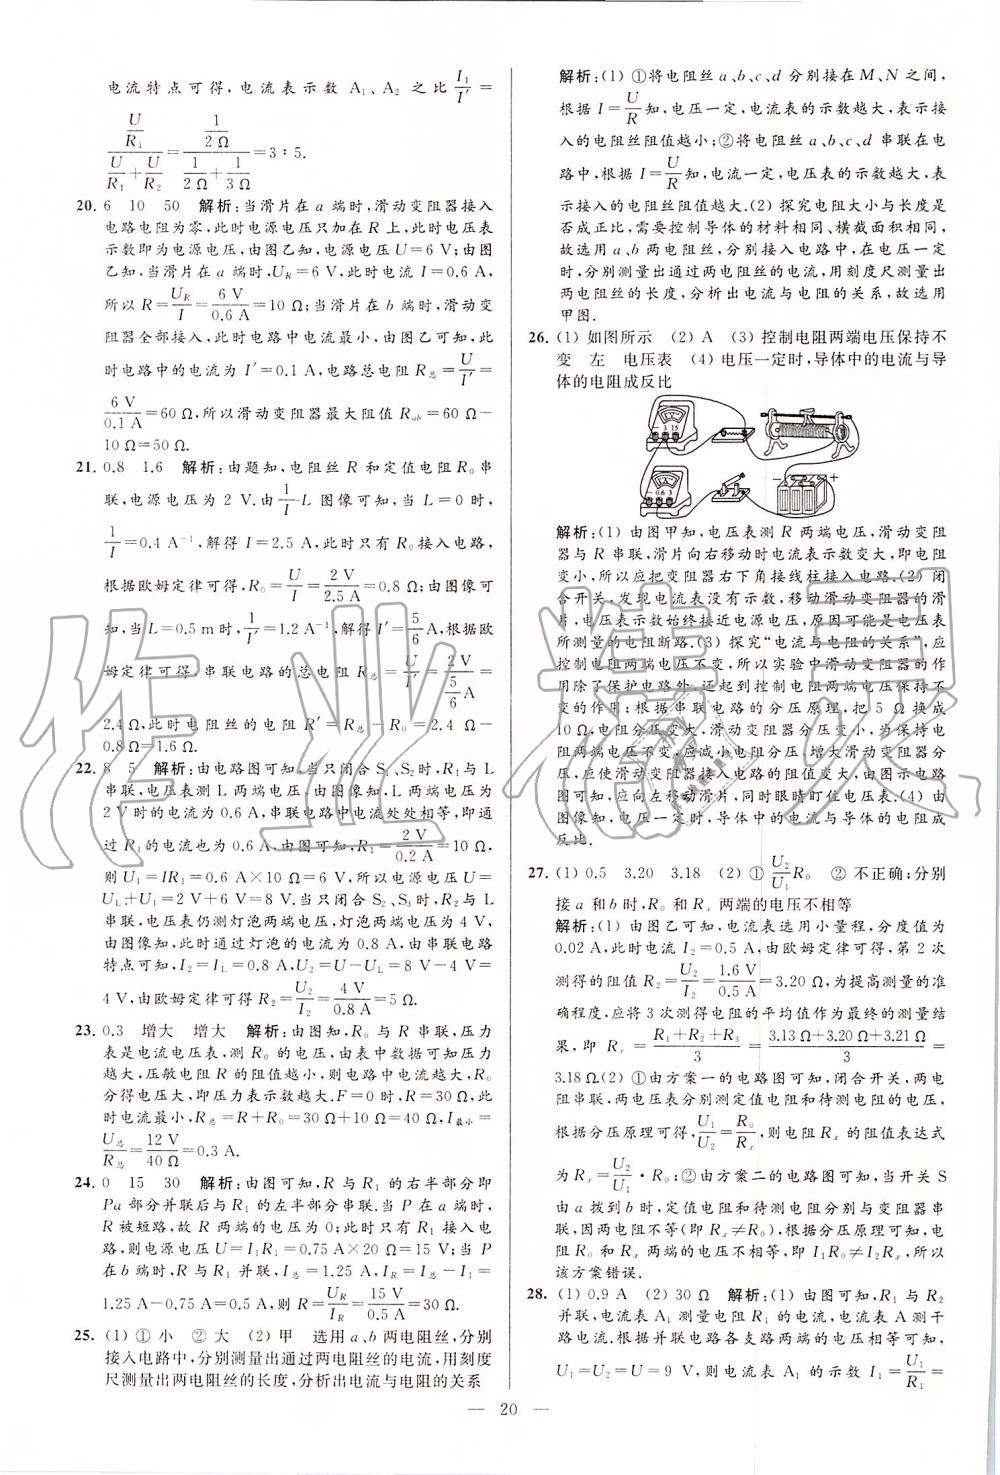 电流特点可得,电流表示数 A₁、A₂ 之比 I₁/I′ =
(U/R₁)/(U/R₁+U/R₂)=(1/2 Ω)/(1/2 Ω+1/3 Ω)=3∶5.
20. 6 10 50 解析:当滑片在 a 端时,滑动变阻器接入
电路电阻为零,此时电源电压只加在 R 上,此时电压表
示数即为电源电压,由图乙知,电源电压 U=6 V;由图
乙知,当滑片在 a 端时,U_R=6 V,此时电流 I=0.6 A,
所以 R=U_R/I=6 V/0.6 A=10 Ω;当滑片在 b 端时,滑动变
阻器全部接入,此时电路中电流最小,由图乙可知,此
时电路中的电流为 I′=0.1 A,电路总电阻 R总=U/I′=
6 V/0.1 A=60 Ω,所以滑动变阻器最大阻值 R_ab=60 Ω-
10 Ω=50 Ω.
21. 0.8 1.6 解析:由题知,电阻丝 R 和定值电阻 R₀ 串
联,电源电压为 2 V.由 1/I-L 图像可知,当 L=0 时,
1/I=0.4 A⁻¹,解得 I=2.5 A,此时只有 R₀ 接入电路,
根据欧姆定律可得,R₀=U/I=2 V/2.5 A=0.8 Ω;由图像可
知,当 L=0.5 m 时,1/I′=1.2 A⁻¹,解得 I′=5/6 A,根据欧
姆定律可得,串联电路的总电阻 R总=U/I′=2 V/(5/6 A)=
2.4 Ω,此时电阻丝的电阻 R′=R总-R₀=2.4 Ω-
0.8 Ω=1.6 Ω.
22. 8 5 解析:由电路图可知,当只闭合 S₁、S₂ 时,R₁ 与 L
串联,电压表测 L 两端电压,由图像知,L 两端电压为
2 V 时的电流为 0.6 A,串联电路中电流处处相等,即通
过 R₁ 的电流也为 0.6 A.由图可知,R₁=2 V/0.2 A=10 Ω,
则 U₁=IR₁=0.6 A×10 Ω=6 V,所以电源电压 U=
U_L+U₁=2 V+6 V=8 V.当只闭合 S₂、S₃ 时,R₂ 与 L
串联,电压表仍测灯泡两端电压,灯泡两端电压为 4 V,
由图像知,此时通过灯泡的电流为 0.8 A,由串联电路
特点可知,I₂=I_L=0.8 A,U₂=U-U_L=8 V-4 V=
4 V,由欧姆定律可得 R₂=U₂/I₂=4 V/0.8 A=5 Ω.
23. 0.3 增大 增大 解析:由图知,R₀ 与 R 串联,压力
表是电流电压表,测 R₀ 的电压,由表中数据可知压力
越大,压敏电阻 R 的阻值越小,则电路中电流越大,R₀
分得电压大,即压力表示数越大.F=0 时,R=30 Ω,此
时电流最小,R总=R+R₀=30 Ω+10 Ω=40 Ω,I最小=
U总/R总=12 V/40 Ω=0.3 A.
24. 0 15 30 解析:由图可知,R 与 R₁ 的右半部分即
Pa 部分并联后与 R₁ 的左半部分串联.当 P 在 a 端时,
R 被短路,故 R 两端的电压为 0;此时只有 R₁ 接入电
路,则电源电压 U=I₁R₁=0.75 A×20 Ω=15 V;当 P
在 b 端时,R 与 R₁ 并联,I总=1.25 A,I_R=I总-I₁=
1.25 A-0.75 A=0.5 A,则 R=U_R/I_R=15 V/0.5 A=30 Ω.
25. (1) ①小 ②大 (2) 甲 选用 a、b 两电阻丝,分别
接入电路中,分别测量出通过两电阻丝的电流,用刻度
尺测量出两电阻丝的长度,分析出电流与电阻的关系
解析:(1) ①将电阻丝 a、b、c、d 分别接在 M、N 之间,
根据 I=U/R 知,电压一定,电流表的示数越大,表示接
入的电阻丝阻值越小;②将电阻丝 a、b、c、d 串联在电
路中,根据 I=U/R 知,电流一定,电压表的示数越大,表
示接入的电阻丝阻值越大.(2) 探究电阻大小与长度是
否成正比,需要控制导体的材料相同、横截面积相同,
故选用 a、b 两电阻丝,分别接入电路中,在电压一定
时,分别测量出通过两电阻丝的电流,用刻度尺测量出
两电阻丝的长度,分析出电流与电阻的关系,故选用
甲图.
26. (1) 如图所示 (2) A (3) 控制电阻两端电压保持不
变 左 电压表 (4) 电压一定时,导体中的电流与导
体的电阻成反比
- 3 15
- 0.6 3
- +
解析:(1) 由图甲知,电压表测 R 两端电压,滑动变阻
器与 R 串联,滑片向右移动时电流表示数变大,即电阻
变小,所以应把变阻器右下角接线柱接入电路.(2) 闭
合开关,发现电流表没有示数,移动滑动变阻器的滑
片,电压表示数始终接近电源电压,原因可能是电压表
所测量的电阻断路.(3) 探究“电流与电阻的关系”,应
控制电阻两端电压不变,所以实验中滑动变阻器的作
用除了保护电路外,还起到控制电阻两端电压保持不
变的作用;根据串联电路的分压原理,把 5 Ω 换成
10 Ω,电阻分压变大,滑动变阻器分压变小,为保持电
阻两端电压不变,应减小电阻分压,增大滑动变阻器分
压,应使滑动变阻器接入电路的阻值变大,由图示电路
图可知,应向左移动滑片,同时眼睛盯住电压表.(4) 由
图像知,电压一定时,导体中的电流与导体的电阻成
反比.
27. (1) 0.5 3.20 3.18 (2) ① U₂/U₁ R₀ ② 不正确;分别
接 a 和 b 时,R₀ 和 Rₓ 两端的电压不相等
解析:(1) 由图乙可知,电流表选用小量程,分度值为
0.02 A,此时电流 I₂=0.5 A,由欧姆定律可得,第 2 次
测得的阻值 R₂=U₂/I₂=1.6 V/0.5 A=3.20 Ω,为提高测量的准
确程度,应将 3 次测得电阻的平均值作为最终的测量结
果,即 Rₓ=(R₁+R₂+R₃)/3=(3.13 Ω+3.20 Ω+3.21 Ω)/3=
3.18 Ω.(2) ①由方案一的电路图可知,闭合开关,两电
阻串联,两电压表分别测定值电阻和待测电阻的电压,
根据分压原理可得,U₁/U₂=R₀/Rₓ,则电阻 Rₓ 的阻值表达式
为 Rₓ=U₂/U₁·R₀;②由方案二的电路图可知,当开关 S
由 a 拨到 b 时,定值电阻和待测电阻分别与变阻器串
联,因两电阻不等(即 Rₓ≠R₀),根据分压原理可知,
电阻 R₀ 和 Rₓ 两端的电压不相等,即 I₁R₀≠I₂Rₓ,所以
该方案错误.
28. (1) 0.9 A (2) 30 Ω 解析:(1) 由图可知,R₁ 与 R₂
并联,电流表 A₁ 测量电阻 R₁ 的电流,电流表 A 测干
路电流.根据并联电路各支路两端的电压相等可知,
U₁=U₂=U=9 V,则电流表 A₁ 的示数 I₁=U₁/R₁=
— 20 —
作业精灵